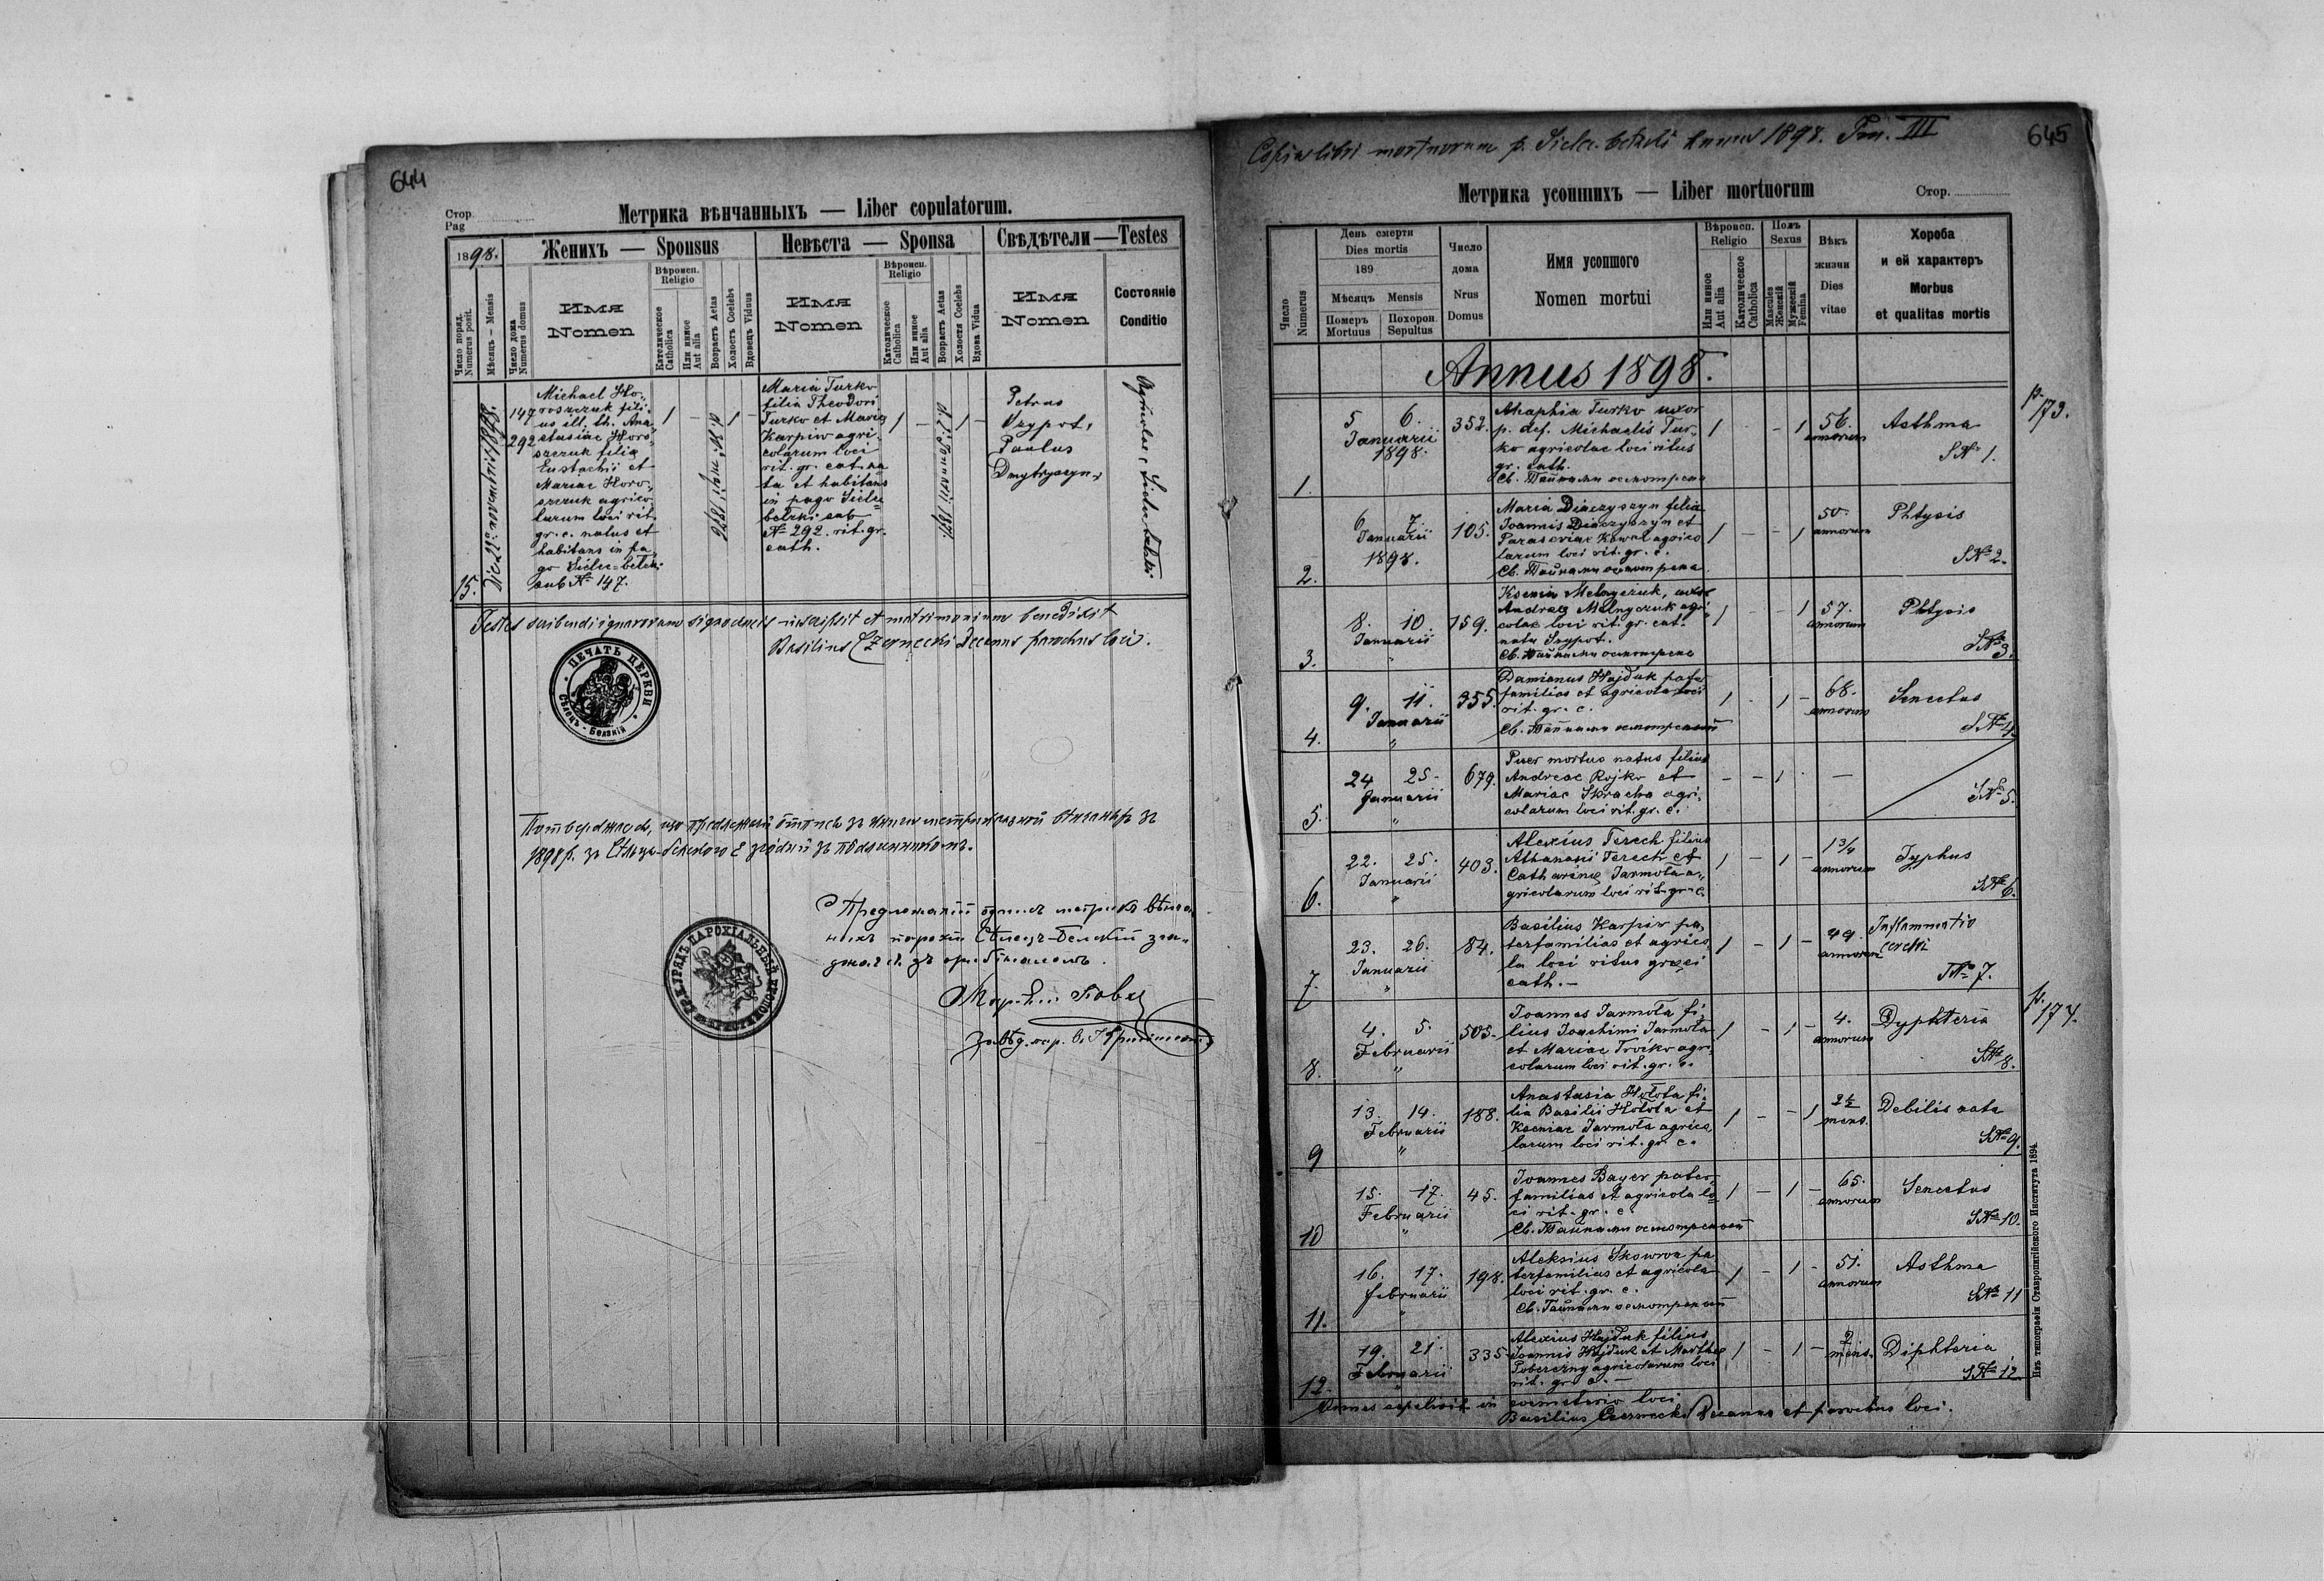 644
Стор.
Pag
Метрика вѣнчанныхъ — Liber copulatorum.
1898.
Женихъ — Sponsus
Невѣста — Sponsa
Свѣдѣтели — Testes
Число поряд.
Numerus posit.
Мѣсяцъ – Mensis
Число дома
Numerus domus
Имя
Nomen
Вѣроисп.
Religio
Католическое
Catholica
Или иное
Aut alia
Возрастъ Aetas
Холостъ Coelebs
Вдовецъ Viduus
Имя
Nomen
Вѣроисп.
Religio
Католическое
Catholica
Или иное
Aut alia
Возрастъ Aetas
Холостя Coelebs
Вдова Vidua
Имя
Nomen
Состояніе
Conditio
15.
Die 22º novembris 1898.
147
292
Michael Ho-
roszczuk fili-
us ill. th. Ana-
stasiae Horo-
szczuk filia
Eustachii et
Mariae Horo-
szczuk agrico-
larum loci rit.
gr. c. natus et
habitans in pa-
go Sielec-bełzki
sub № 147.
1 – 1 –
Maria Turko
filia Theodori
Turko et Maria
Karpiw agri-
colarum loci
rit. gr. cat. na-
ta et habitans
in pago Sielec
bełzki sub
№ 292. rit. gr.
cath.
1 – 1 –
Petrus
Szypot,
Paulus
Dmytryszyn
Agricolae, Sielec bełzki
Testes scribendi ignarorum signa crucis inscripsit et matrimonium benedixit
Basilius Czernecki Decanus parochus loci.
ПЕЧАТЬ ЦЕРКВИ
Сѣлець - Белзкій
1898 р. зъ Сѣльця-белзкого є згôдный зъ подлинникомъ.
Предлежащій одписъ метрикъ вѣнча-
ныхъ парохіи Сѣлець-Белзкій
зъ оригиналомъ.
645
Copia libri mortuorum p. Sielec bełzki Annus 1898. Tom. III
Метрика усопшихъ — Liber mortuorum
Стор.
Число
Numerus
День смерти
Dies mortis
189
Мѣсяцъ Mensis
Померъ
Mortuus
Похорон.
Sepultus
Число
дома
Nrus
Domus
Имя усопшого
Nomen mortui
Вѣроисп.
Religio
Или иное
Aut alia
Католическое
Catholica
Полъ
Sexus
Mascules
Женскій
Мужескій
Femina
Вѣкъ
жизни
Dies
vitae
Хороба
и ей характеръ
Morbus
et qualitas mortis
Annus 1898.
p. 173.
1.
5 6.
Januarii
1898.
352.
Ahaphia Turko uxor
p. def. Michaelis Tur-
ko agricolae loci ritus
gr. cath.
Св. Тайнами осмотрена
1 - - 1
56.
annorum
Asthma
S№ 1.
2.
6 7
Januarii
1898.
105.
Maria Diaczyszyn filia
Joannis Diaczyszyn et
Parasceviae Kowal agrico
larum loci rit. gr. c.
Св. Тайнами осмотрена
1 – – 1
50.
annorum
Phtysis
S№ 2.
3.
8. 10.
Januarii
"
159.
Ksenia Melnyczuk, uxor
Andreae Melnyczuk agri-
colae loci rit. gr. cat.
nata Szypot.
Св. Тайнами осмотрена
1 - - 1
57.
annorum
Phtysis
S№ 3.
4.
9. 11.
Januarii
"
355.
Damianus Hajduk pater
familias et agricola loci
rit. gr. c.
Св. Тайнами осмотреный
1 - 1 –
68.
annorum
Senectus
S№ 4.
5.
24 25.
Januarii
"
679.
Puer mortuo natus filius
Andreae Rojko et
Mariae Skracha agri-
colarum loci rit. gr. c.
– – 1 -
—
S№ 5.
6.
22. 25.
Januarii
"
403.
Alexius Terech filius
Athanasii Terech et
Catharinae Jarmoła a-
gricolarum loci rit. gr. c.
1 – 1 –
1 3/4
annorum
Typhus
S№ 6.
7.
23. 26.
Januarii
"
84.
Basilius Karpiw pa-
terfamilias et agrico-
la loci ritus graeci
cath. –
1 – 1 –
49.
annorum
Inflammatio
cerebri
S№ 7.
p. 174.
8.
4. 5.
Februarii
"
505.
Joannes Jarmoła fi-
lius Joachimi Jarmoła
et Mariae Troćko agri-
colarum loci rit. gr. c.
1 – 1 –
4.
annorum
Dyphteria
S№ 8.
9
13. 14.
Februarii
"
188.
Anastasia Hołota fi-
lia Basilii Hołota et
Kseniae Jarmoła agrico
larum loci rit. gr. c.
1 – – 1
2½
mens.
Debilis nata
S№ 9.
10
15. 17.
Februarii
"
45.
Joannes Bayer pater-
familias et agricola lo-
ci rit. gr. c.
Св. Тайнами осмотреный
1 – 1 –
65.
annorum
Senectus
S№ 10.
11.
16. 17.
Februarii
"
198.
Aleksius Skowron pa
terfamilias et agricola
loci rit. gr. c.
Св. Тайнами осмотреный
1 – 1 –
51.
annorum
Asthma
S№ 11
12.
19. 21.
Februarii
"
335
Alexius Hajduk filius
Joannis Hajduk et Marthae
Pobereżny agricolarum loci
rit. gr. c. –
1 – 1 –
2
mens.
Diphteria
S№ 12
Omnes sepelivit in coemeterio loci
Basilius Czernecki Decanus et parochus loci.
Изъ типографіи Ставропигійского Института 1894.